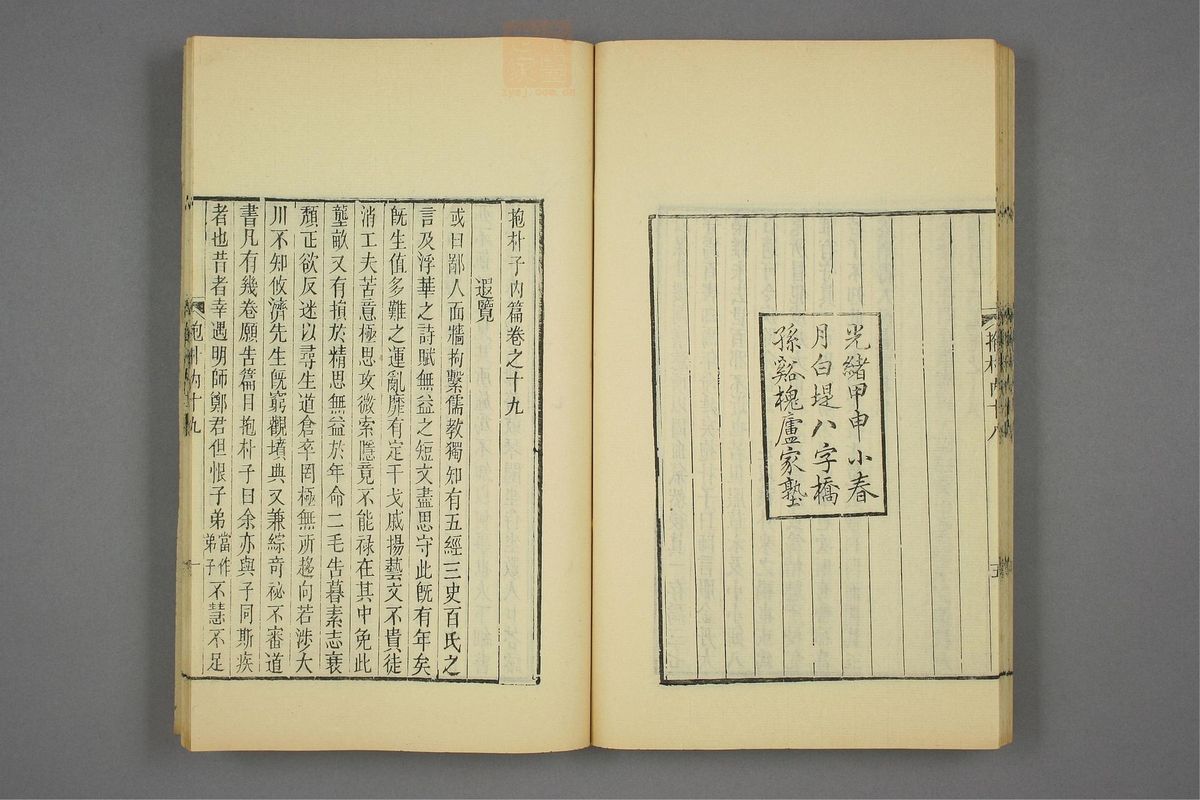 光緒甲申小春
月白堤八字橋
孫谿槐廬家塾
抱朴內十八
五
抱朴子內篇卷之十九
遐覽
或曰鄙人面牆拘繫儒教獨知有五經三史百氏之
言及浮華之詩賦無益之短文盡思守此既有年矣
既生值多難之運亂靡有定干戈戚揚藝文不貴徒
消工夫苦意極思攻微索隱竟不能祿在其中免此
壟畝又有損於精思無益於年命二毛告暮素志衰
頹正欲反迷以尋生道倉卒罔極無所趨向若涉大
川不知攸濟先生既窮觀墳典又兼綜奇祕不審道
書凡有幾卷願告篇目抱朴子曰余亦與子同斯疾
者也昔者幸遇明師鄭君但恨子弟當作弟子不慧不足
抱朴內十九
一